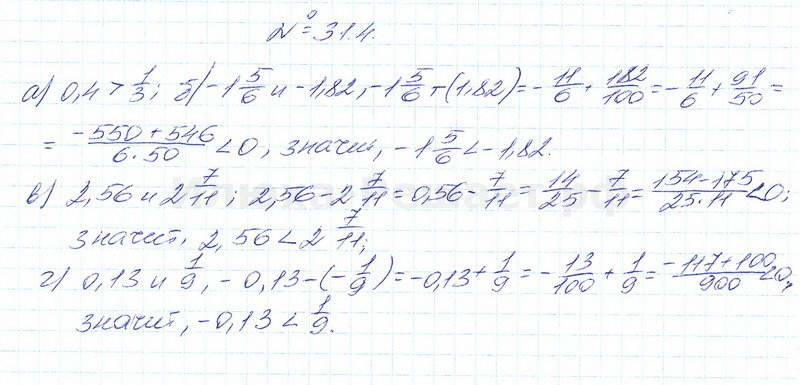 № 314.
а) 0,4 > 1/3; б) -1 5/6 и -1,82, -1 5/6 -(1,82) = -11/6 + 182/100 = -11/6 + 91/50 =
= (-550 + 546)/(6·50) < 0, значит, -1 5/6 < -1,82.
в) 2,56 и 2 7/11; 2,56 - 2 7/11 = 0,56 - 7/11 = 14/25 - 7/11 = (154-175)/(25·11) < 0;
значит, 2,56 < 2 7/11;
г) 0,13 и 1/9, -0,13 -(-1/9) = -0,13 + 1/9 = -13/100 + 1/9 = (-117 + 100)/900 < 0,
значит, -0,13 < 1/9.